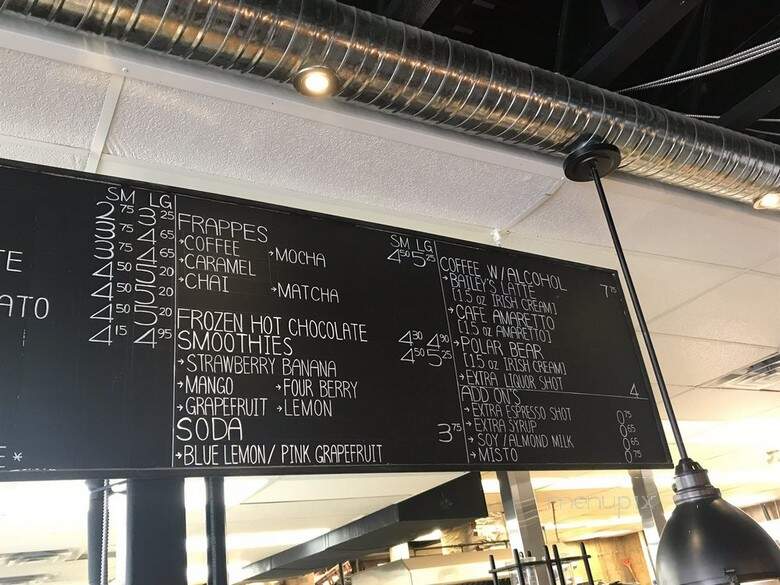 SM LG
2 75 3 25
3 75 4 65
3 75 4 65
4 50 5 20
4 50 5 20
4 50 5 20
4 15 4 95
TE
ATO
E*
FRAPPES SM LG
→COFFEE →MOCHA 4 50 5 25
→CARAMEL
→CHAI →MATCHA
FROZEN HOT CHOCOLATE 4 30 4 90
SMOOTHIES 4 50 5 25
→STRAWBERRY BANANA
→MANGO →FOUR BERRY
→GRAPEFRUIT →LEMON
SODA 3 75
→BLUE LEMON/ PINK GRAPEFRUIT
COFFEE W/ALCOHOL 7 75
→BAILEY'S LATTE
[1.5 oz IRISH CREAM]
→CAFE AMARETTO
[1.5 oz AMARETTO]
→POLAR BEAR
[1.5 oz IRISH CREAM]
→EXTRA LIQUOR SHOT 4
ADD ON'S
→EXTRA ESPRESSO SHOT 0 75
→EXTRA SYRUP 0 65
→SOY/ALMOND MILK 0 65
→MISTO 0 75